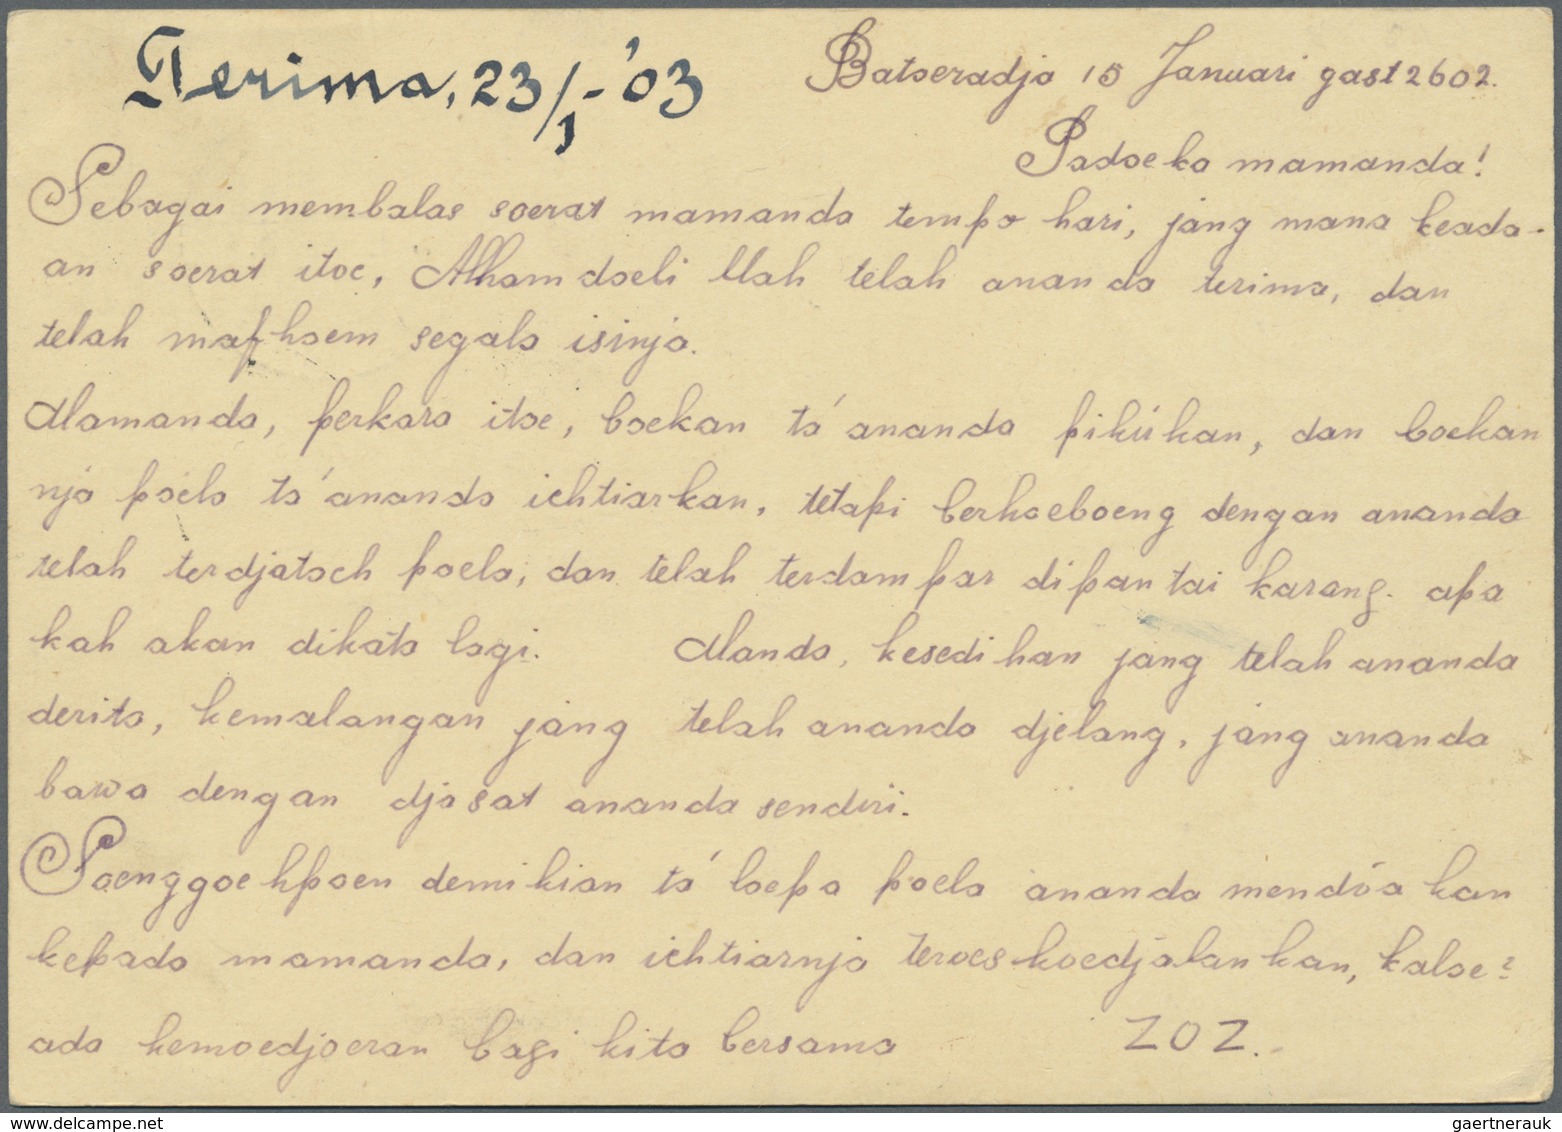 Terima, 23/1-'03
Batoeradja 15 Januari 2602.
Padoeka mamanda!
Sebagai membalas soerat mamanda tempo hari, jang mana keada-
an soerat itoe, Alhamdoeli llah telah ananda terima, dan
telah mafhoem segala isinja.
Mamanda, perkara itoe, boekan ta' ananda pikirkan, dan boekan
nja poela ta' ananda ichtiarkan, tetapi berhoeboeng dengan ananda
telah terdjatoeh poela, dan telah terdampar dipantai karang. apa
kah akan dikata lagi. Manda, kesedihan jang telah ananda
derita, kemalangan jang telah ananda djelang, jang ananda
bawa dengan djasat ananda sendiri.
Soenggoehpoen demikian ta' loepa poela ananda mendo'a kan
kepada mamanda, dan ichtiarnja teroes koedjalankan, kaloe2
ada kemoedjoeran bagi kita bersama ZOZ..
gaertnerauk